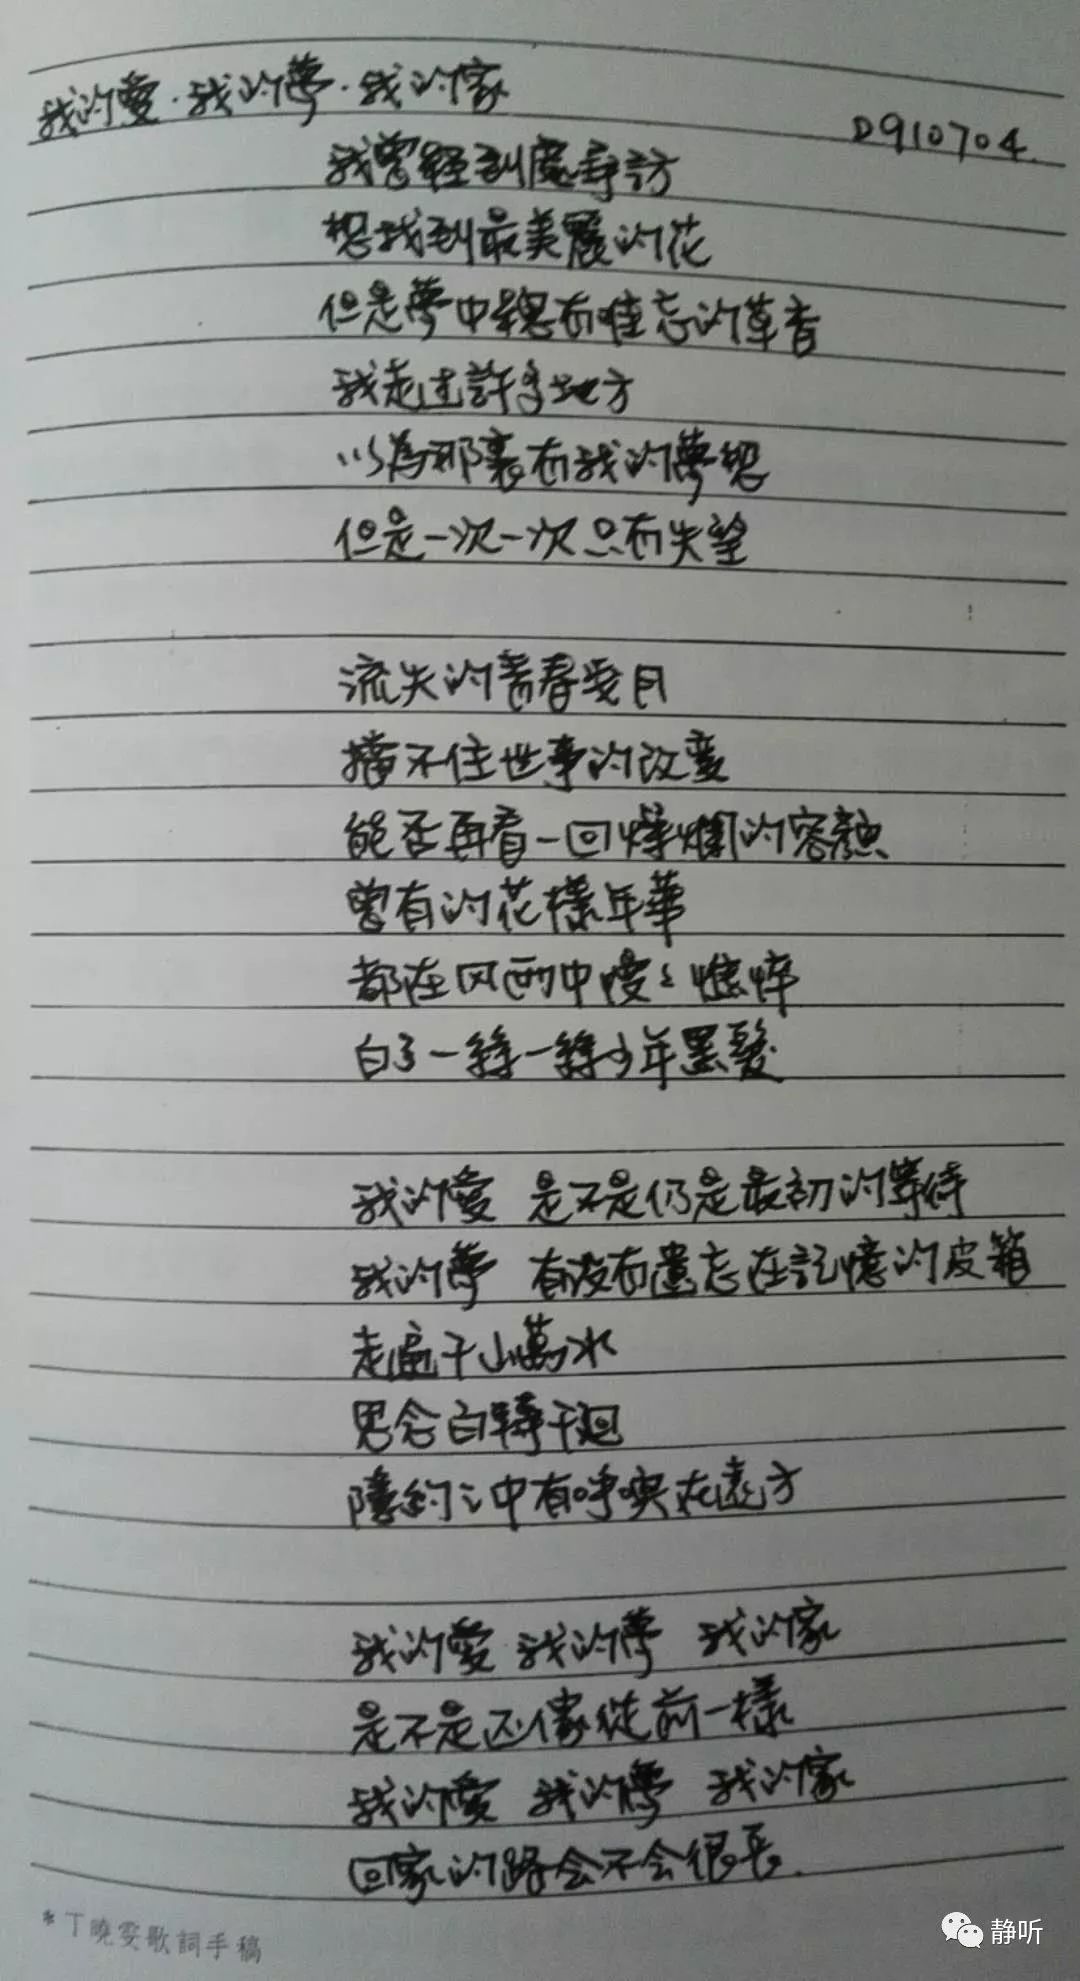 我的愛·我的夢·我的家
D910704.
我曾經到處尋訪
想找到最美麗的花
但是夢中總有難忘的草香
我走过許多地方
以為那裏有我的夢想
但是一次一次只有失望
流失的青春歲月
擋不住世事的改變
能否再看一回燦爛的容顏
曾有的花樣年華
都在风雨中慢々憔悴
白了一絲一絲少年黑髮
我的愛 是不是仍是最初的等待
我的夢 有没有遺忘在記憶的皮箱
走遍千山萬水
思念百轉千迴
隱約之中有呼喚在遠方
我的愛 我的夢 我的家
是不是还像從前一樣
我的愛 我的夢 我的家
回家的路会不会很長.
*丁曉雯歌詞手稿
静听